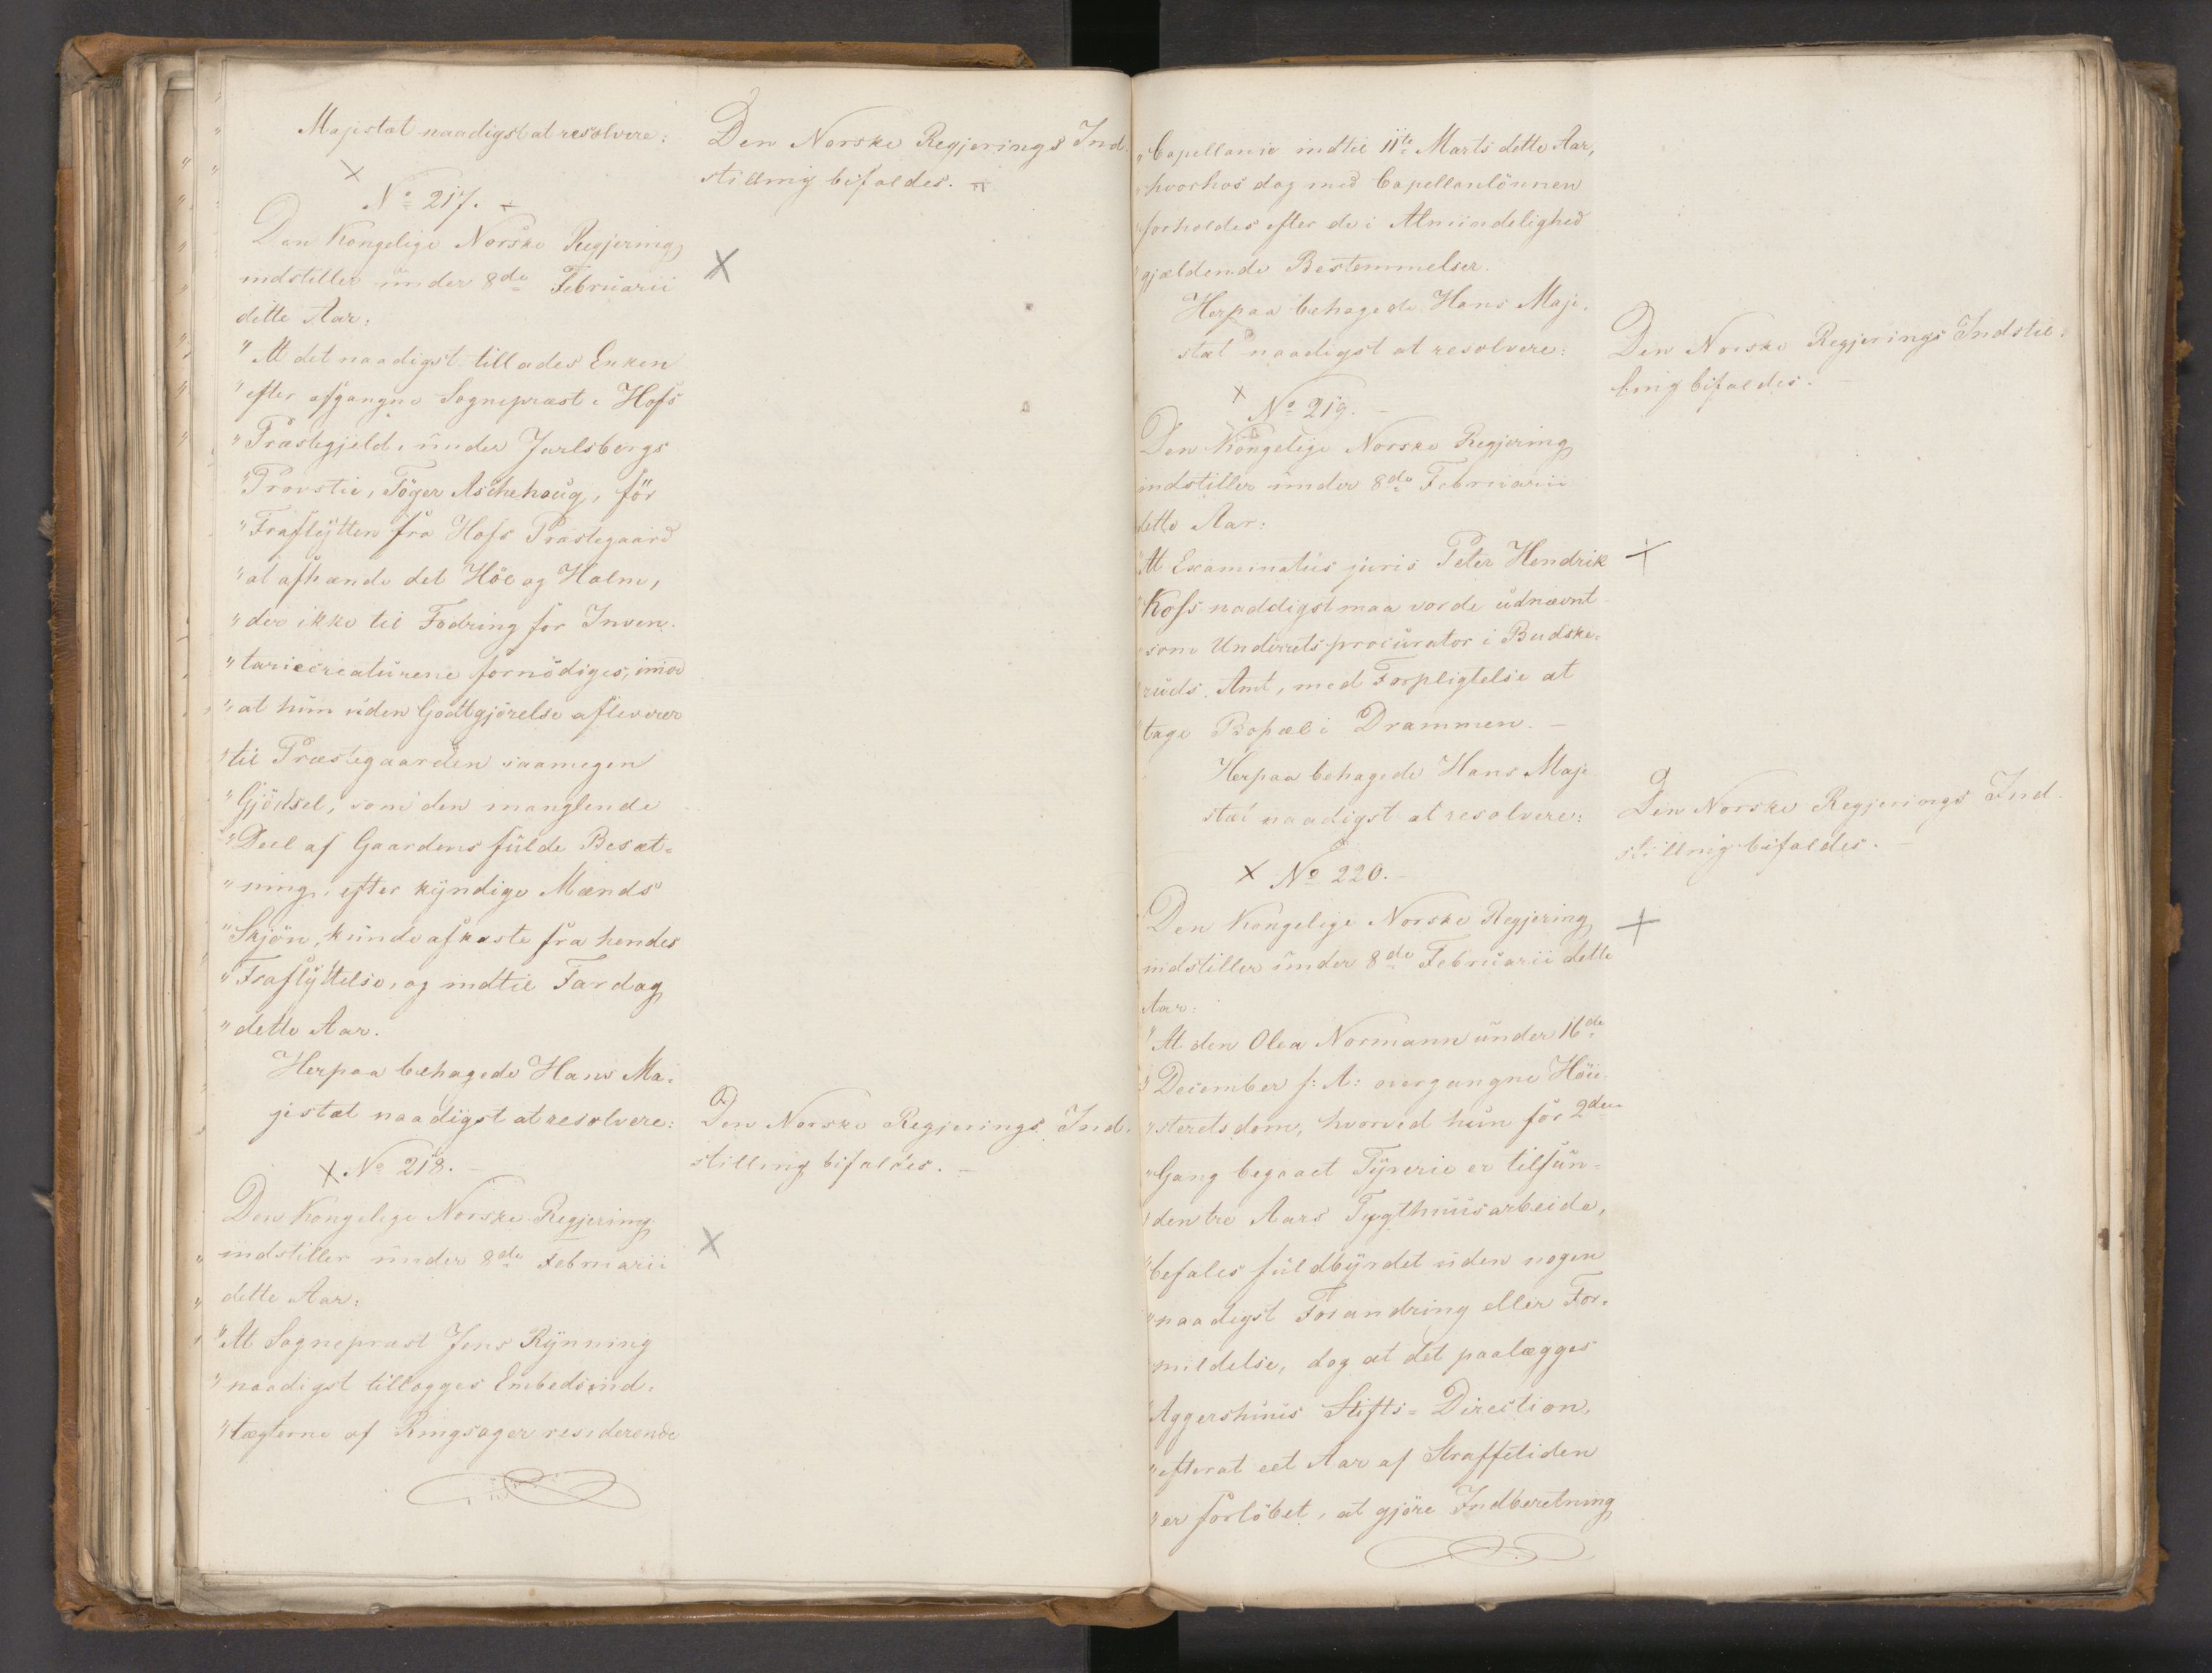 Majestæt naadigst at resolvere:
Den Norske Regjerings Ind-
stilling bifaldes. –
No 217. –
Den Kongelige Norske Regjering
indstiller under 8de Februarii
dette Aar:
"At det naadigst tillades Enken
"efter afgangne Sognepræst i Hofs
"Præstegjeld, under Jarlsbergs
"Provstie, Töger Aschehoug, för
"Fraflytten fra Hofs Præstegaard
"at afhænde det Höe og Halm,
"der ikke til Fodring for Inven-
"tariecreaturene fornödiges, imod
"at hun uden Godtgjörelse afleverer
"til Præstegaarden saamegen
"Gjödsel, som den manglende
"Deel af Gaardens fulde Besæt-
"ning, efter kyndige Mænds
"Skjön, kunde afkaste fra hendes
"Fraflyttelse, og indtil Fardag
"dette Aar.
Herpaa behagede Hans Ma-
jestæt naadigst at resolvere:
Den Norske Regjerings Ind-
stilling bifaldes. –
No 218. –
Den Kongelige Norske Regjering
indstiller under 8de Februarii
dette Aar:
"At Sognepræst Jens Rynning
"naadigst tillægges Embedsind-
"tægterne af Ringsager residerende
"Capellanie indtil 11te Marts dette Aar,
"hvorhos dog med Capellanlönnen
"forholdes efter de i Almindelighed
"gjældende Bestemmelser.
Herpaa behagede Hans Maje-
stæt naadigst at resolvere:
Den Norske Regjerings Indstil-
ling bifaldes. –
No 219. –
Den Kongelige Norske Regjering
indstiller under 8de Februarii
dette Aar:
"At Examinatus juris Peter Hendrik
"Kofs naddigst maa vorde udnævnt
"som Underrets procurator i Budske-
"ruds Amt, med Forpligtelse at
tage Bopæl i Drammen. –
Herpaa behagede Hans Maje
stæt naadigst at resolvere:
Den Norske Regjerings Ind-
stilling bifaldes. –
No 220. –
Den Kongelige Norske Regjering
indstiller under 8de Februarii dette
Aar:
"At den Olea Normann under 16de
"December f: A: overgangne Höie-
"steretsdom, hvorved hun for 2den
"Gang begaaet Tyverie er tilfun-
"den tre Aars Tugthuusarbeide,
"befales fuldbyrdet uden nogen
"naadigst Forandring eller For-
mildelse, dog at det paalægges
Aggershuus Stifts-Direction,
"efterat eet Aar af Straffetiden
"er forlöbet, at gjöre Indberetning